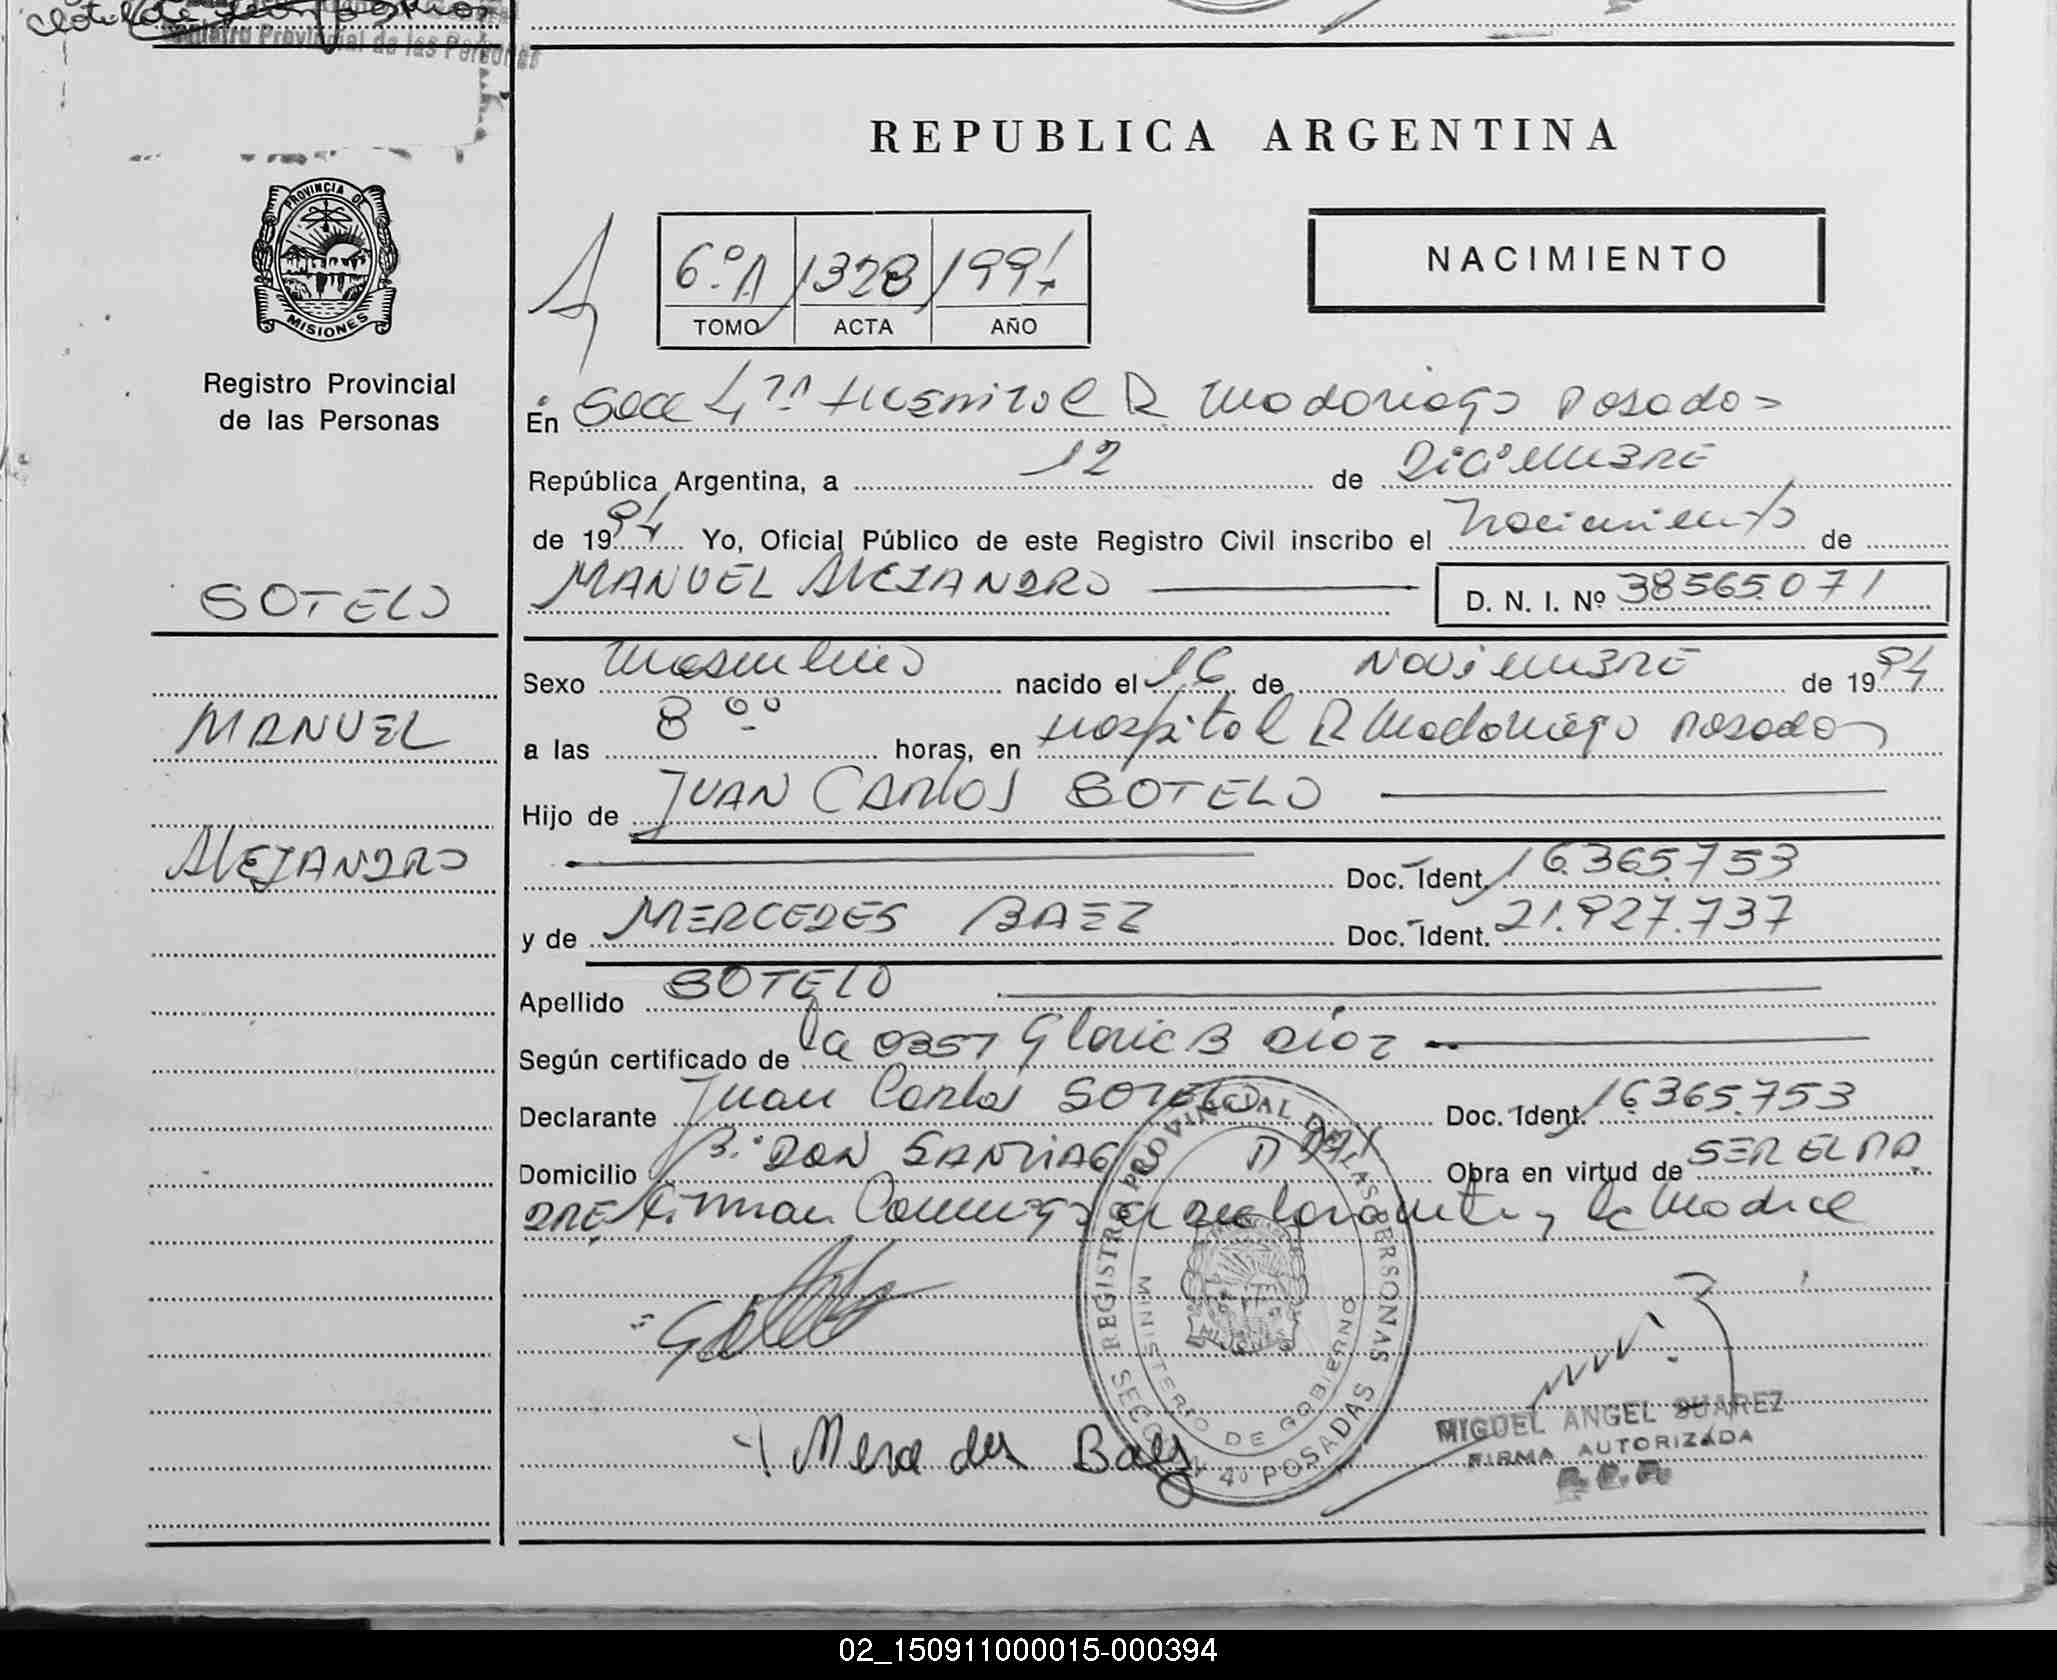 Registro Provincial de las Personas
REPUBLICA ARGENTINA
NACIMIENTO
6º A 1328 1994
TOMO ACTA AÑO
PROVINCIA DE
MISIONES
Registro Provincial
de las Personas
SOTELO
MANUEL
ALEJANDRO
En Secc 4ta Hospital R Madariaga Posadas
República Argentina, a 12 de DICIEMBRE
de 1994 Yo, Oficial Público de este Registro Civil inscribo el Nacimiento de
MANUEL ALEJANDRO D. N. I. Nº 38565071
Sexo Masculino nacido el 16 de NOVIEMBRE de 1994
a las 8 oo horas, en Hospital R Madariaga Posadas
Hijo de JUAN CARLOS SOTELO
Doc. Ident. 16.365.753
y de MERCEDES BAEZ Doc. Ident. 21.927.737
Apellido SOTELO
Según certificado de la 0357 Gloria B Díaz
Declarante Juan Carlos SOTELO Doc. Ident. 16.365.753
Domicilio Bº DON SANTIAGO Obra en virtud de SER EL PA
DRE Firman Conmigo el declarante y la Madre
REGISTRO PROVINCIAL DE LAS PERSONAS
MINISTERIO DE GOBIERNO
SECCION 4º POSADAS
Mercedes Baez
MIGUEL ANGEL SUAREZ
FIRMA AUTORIZADA
02_150911000015-000394